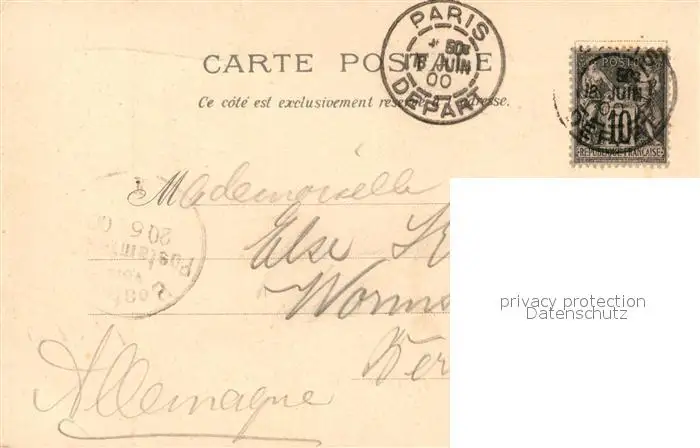 CARTE POSTALE
Ce côté est exclusivement réservé à l'adresse.
PARIS
50
18 JUIN
00
DEPART
POSTES
10
REPUBLIQUE FRANCAISE
50
18 JUIN
00
DEPART
Mademoiselle
Else
Worms
Allemagne
20 6 0
Postamt
privacy protection
Datenschutz